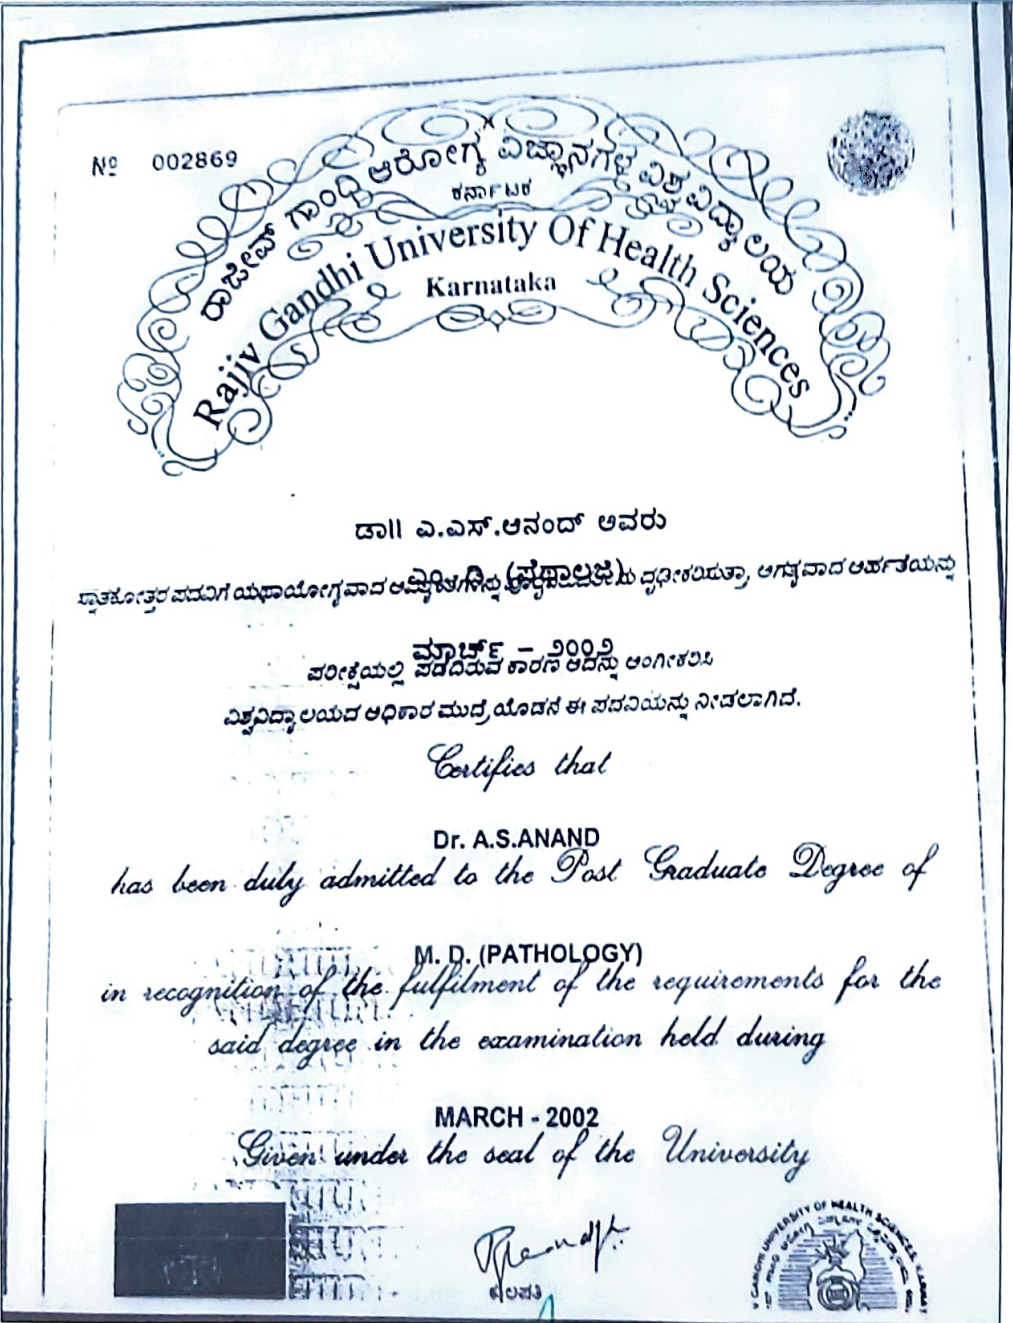 Nº 002869
ರಾಜೀವ್ ಗಾಂಧಿ ಆರೋಗ್ಯ ವಿಜ್ಞಾನಗಳ ವಿಶ್ವವಿದ್ಯಾಲಯ
ಕರ್ನಾಟಕ
Rajiv Gandhi University Of Health Sciences
Karnataka
ಡಾ|| ಎ.ಎಸ್.ಆನಂದ್ ಅವರು
ಎಂ. ಡಿ. (ಪೆಥಾಲಜಿ)
ಸ್ನಾತಕೋತ್ತರ ಪದವಿಗೆ ಯಥಾಯೋಗ್ಯವಾದ ಅಗತ್ಯವಾದ ಅರ್ಹತೆಯನ್ನು
ಮಾರ್ಚ್ – ೨೦೦೨
ಪರೀಕ್ಷೆಯಲ್ಲಿ ಪಡೆದಿರುವ ಕಾರಣ ಅದನ್ನು ಅಂಗೀಕರಿಸಿ
ವಿಶ್ವವಿದ್ಯಾಲಯದ ಅಧಿಕಾರ ಮುದ್ರೆಯೊಡನೆ ಈ ಪದವಿಯನ್ನು ನೀಡಲಾಗಿದೆ.
Certifies that
Dr. A.S.ANAND
has been duly admitted to the Post Graduate Degree of
M. D. (PATHOLOGY)
in recognition of the fulfilment of the requirements for the
said degree in the examination held during
MARCH - 2002
Given under the seal of the University
ಕುಲಪತಿ
GANDHI UNIVERSITY OF HEALTH SCIENCES,